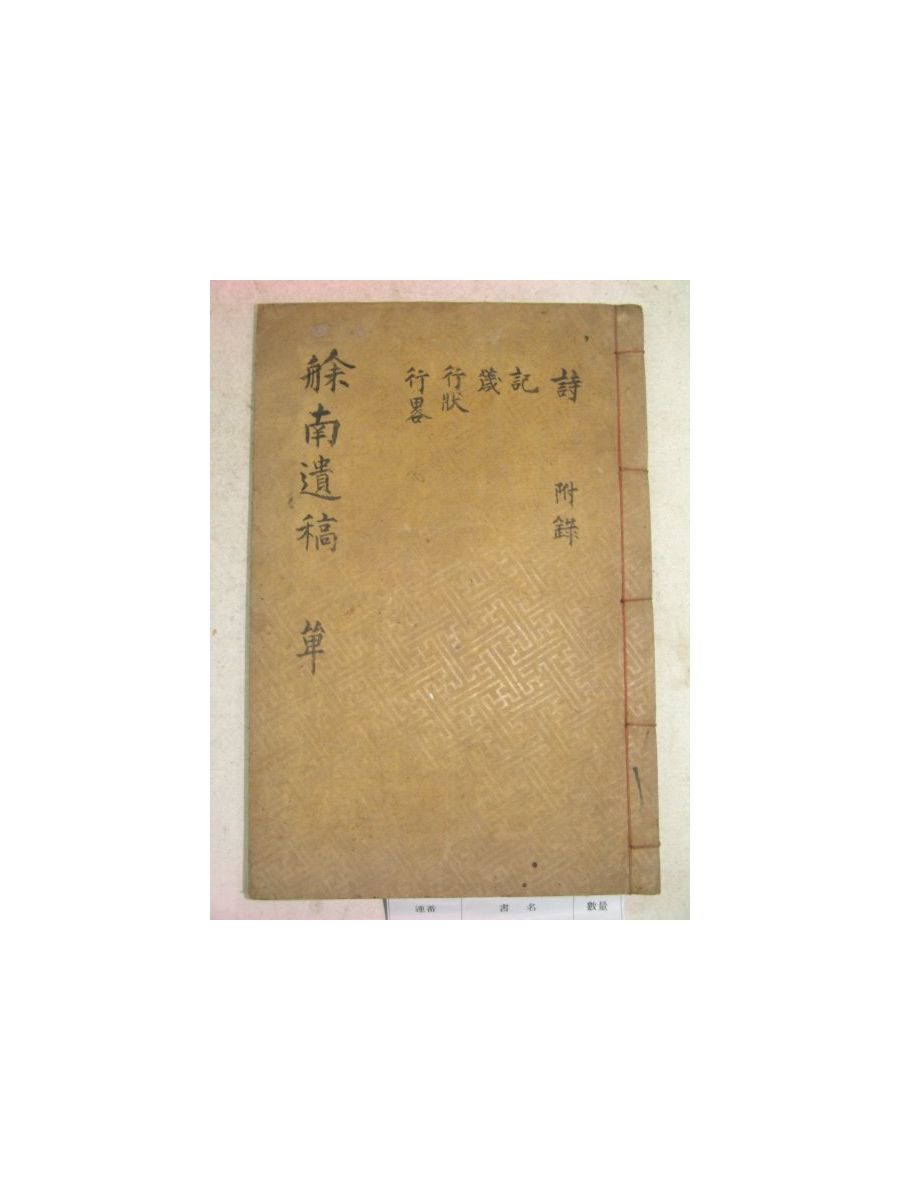 詩 附錄
記
箴
行狀
行畧
艅南遺稿 單
連番 書 名 數量